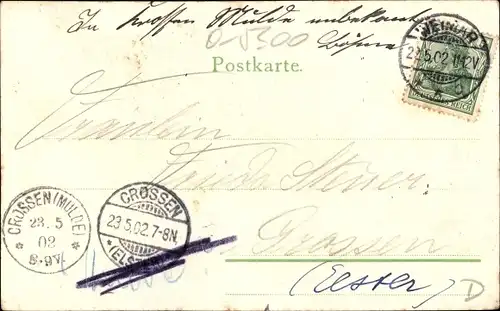 In Krossen Mulde unbekannt
Böhme
0-5300
WEIMAR
23.5.02.11-12V.
DEUTSCHES REICH
Postkarte.
Fräulein
Frieda Steuer
Crossen
(Elster)
CROSSEN (MULDE)
23.5
02
8-9V.
CROSSEN
23.5.02.7-8N.
(ELSTER)
D